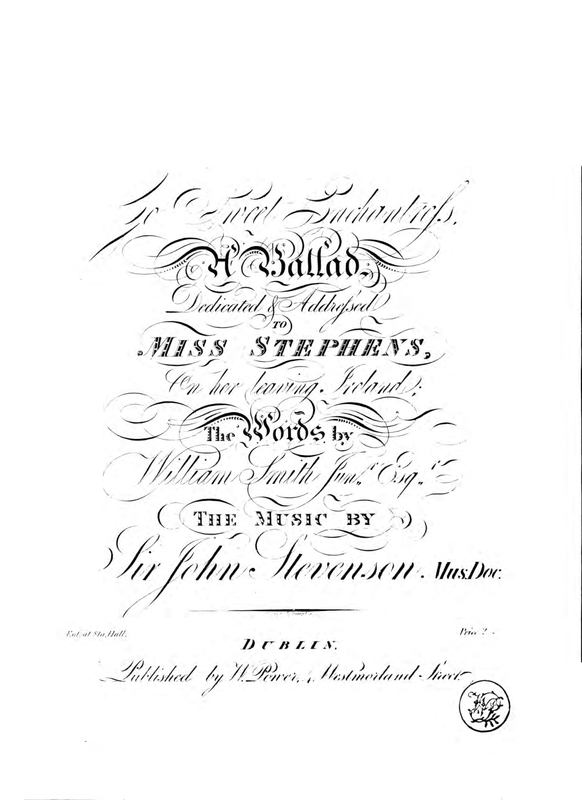 Go Sweet Enchantress,
A Ballad,
Dedicated & Addressed
TO
MISS STEPHENS,
On her leaving Ireland;
The Words by
William Smith Junr. Esqr.
THE MUSIC BY
Sir John Stevenson. Mus. Doc.
Ent. at Sta. Hall.
Price 2
DUBLIN,
Published by W. Power, 4 Westmorland Street